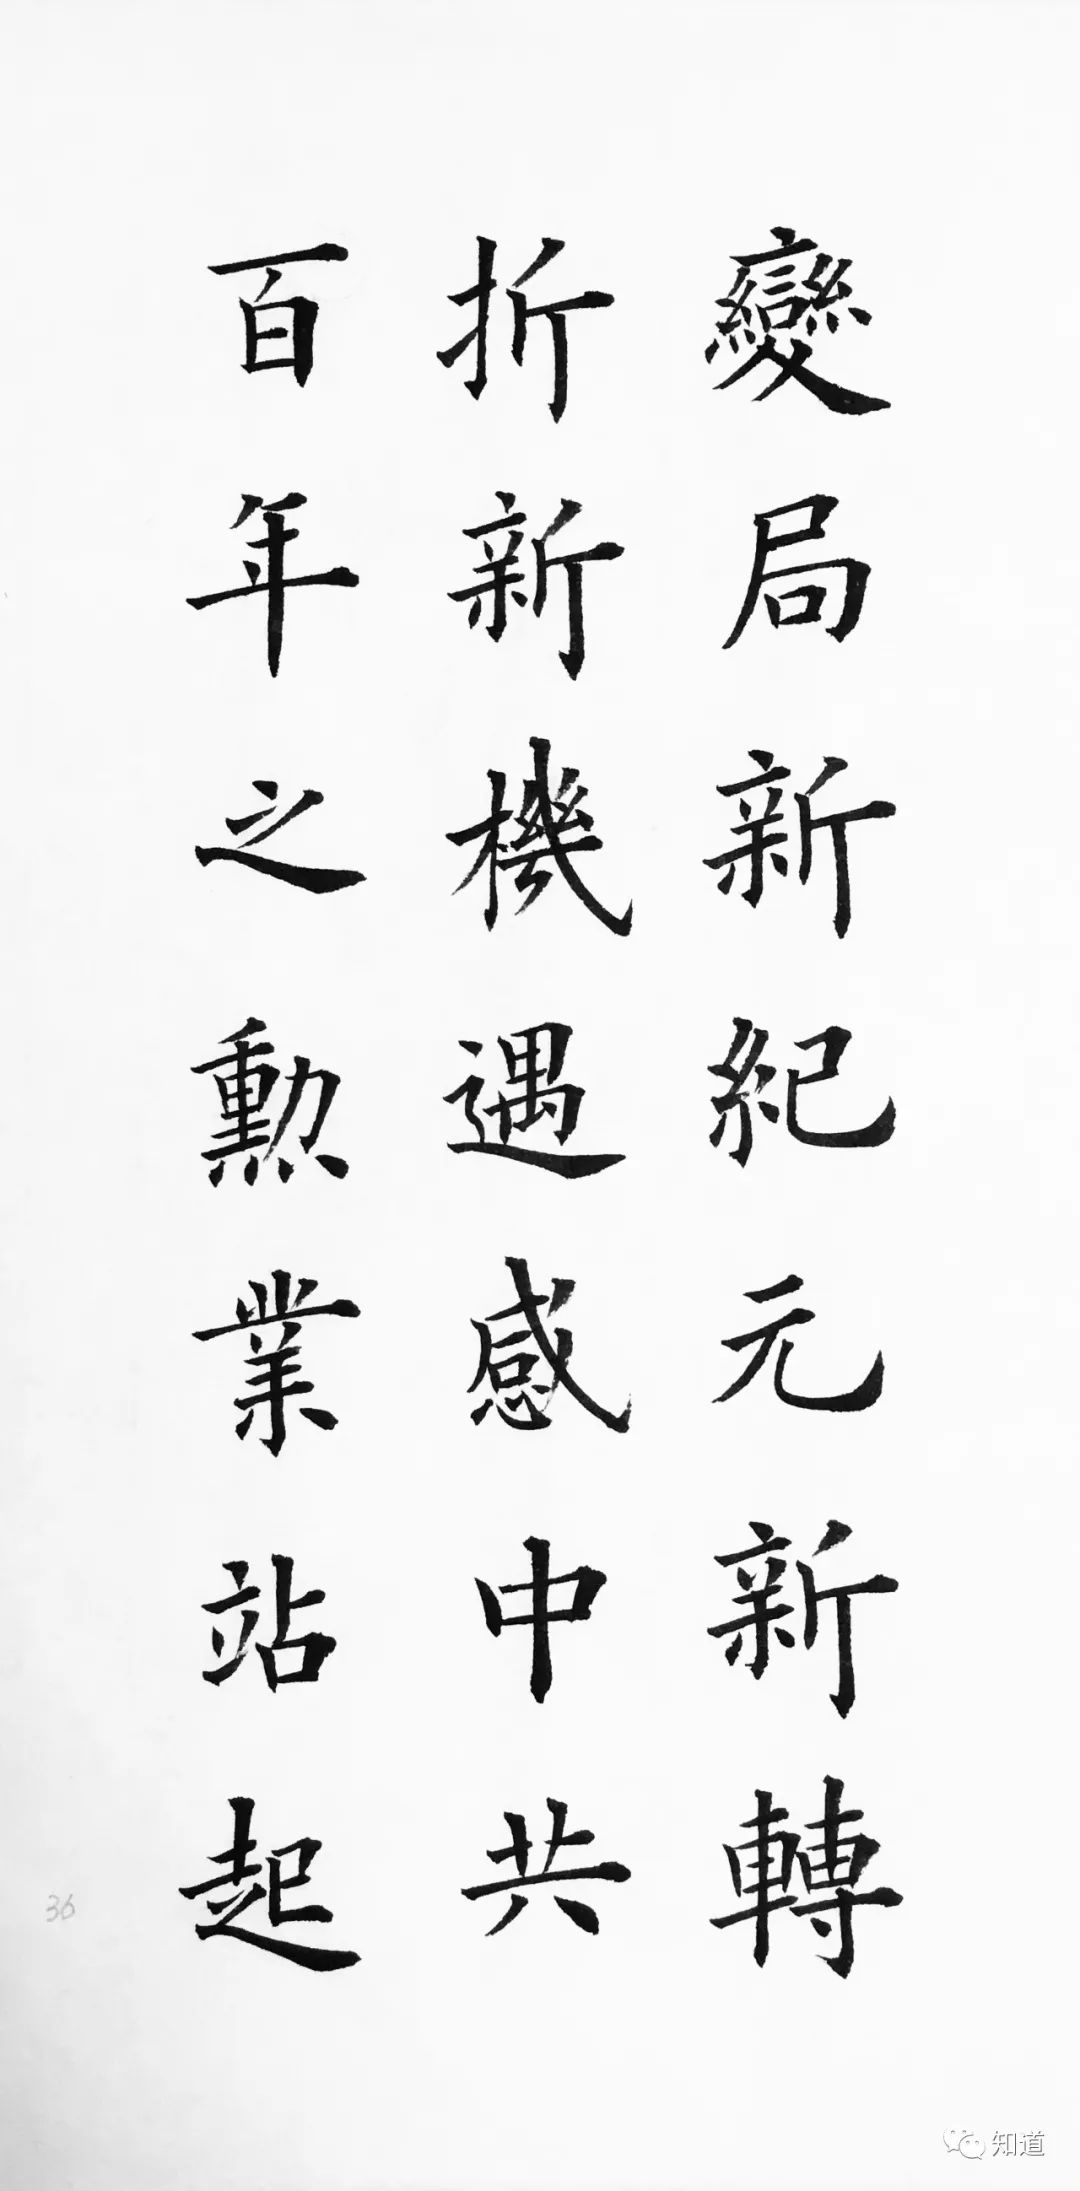 變局新紀元新轉
折新機遇感中共
百年之勲業站起
36
知道